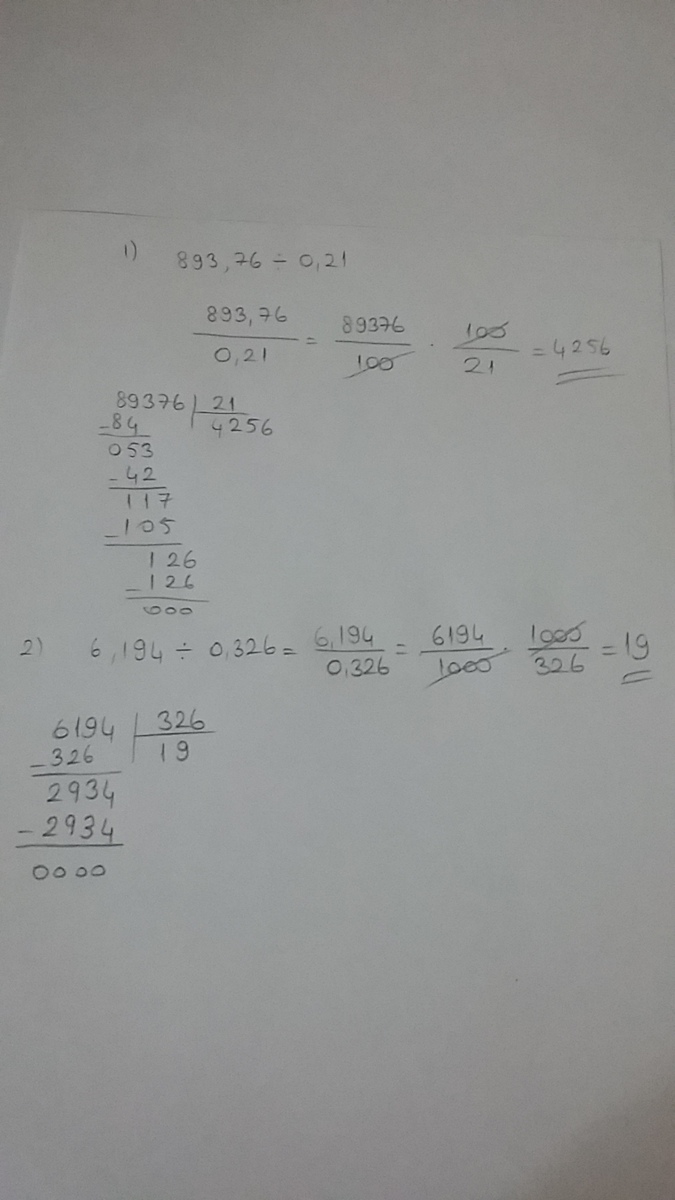 1) 893,76 ÷ 0,21
893,76 / 0,21 = 89376 / 100 · 100 / 21 = 4256
89376 | 21
-84 4256
053
-42
117
-105
126
-126
000
2) 6,194 ÷ 0,326 = 6,194 / 0,326 = 6194 / 1000 · 1000 / 326 = 19
6194 | 326
-326 19
2934
-2934
0000